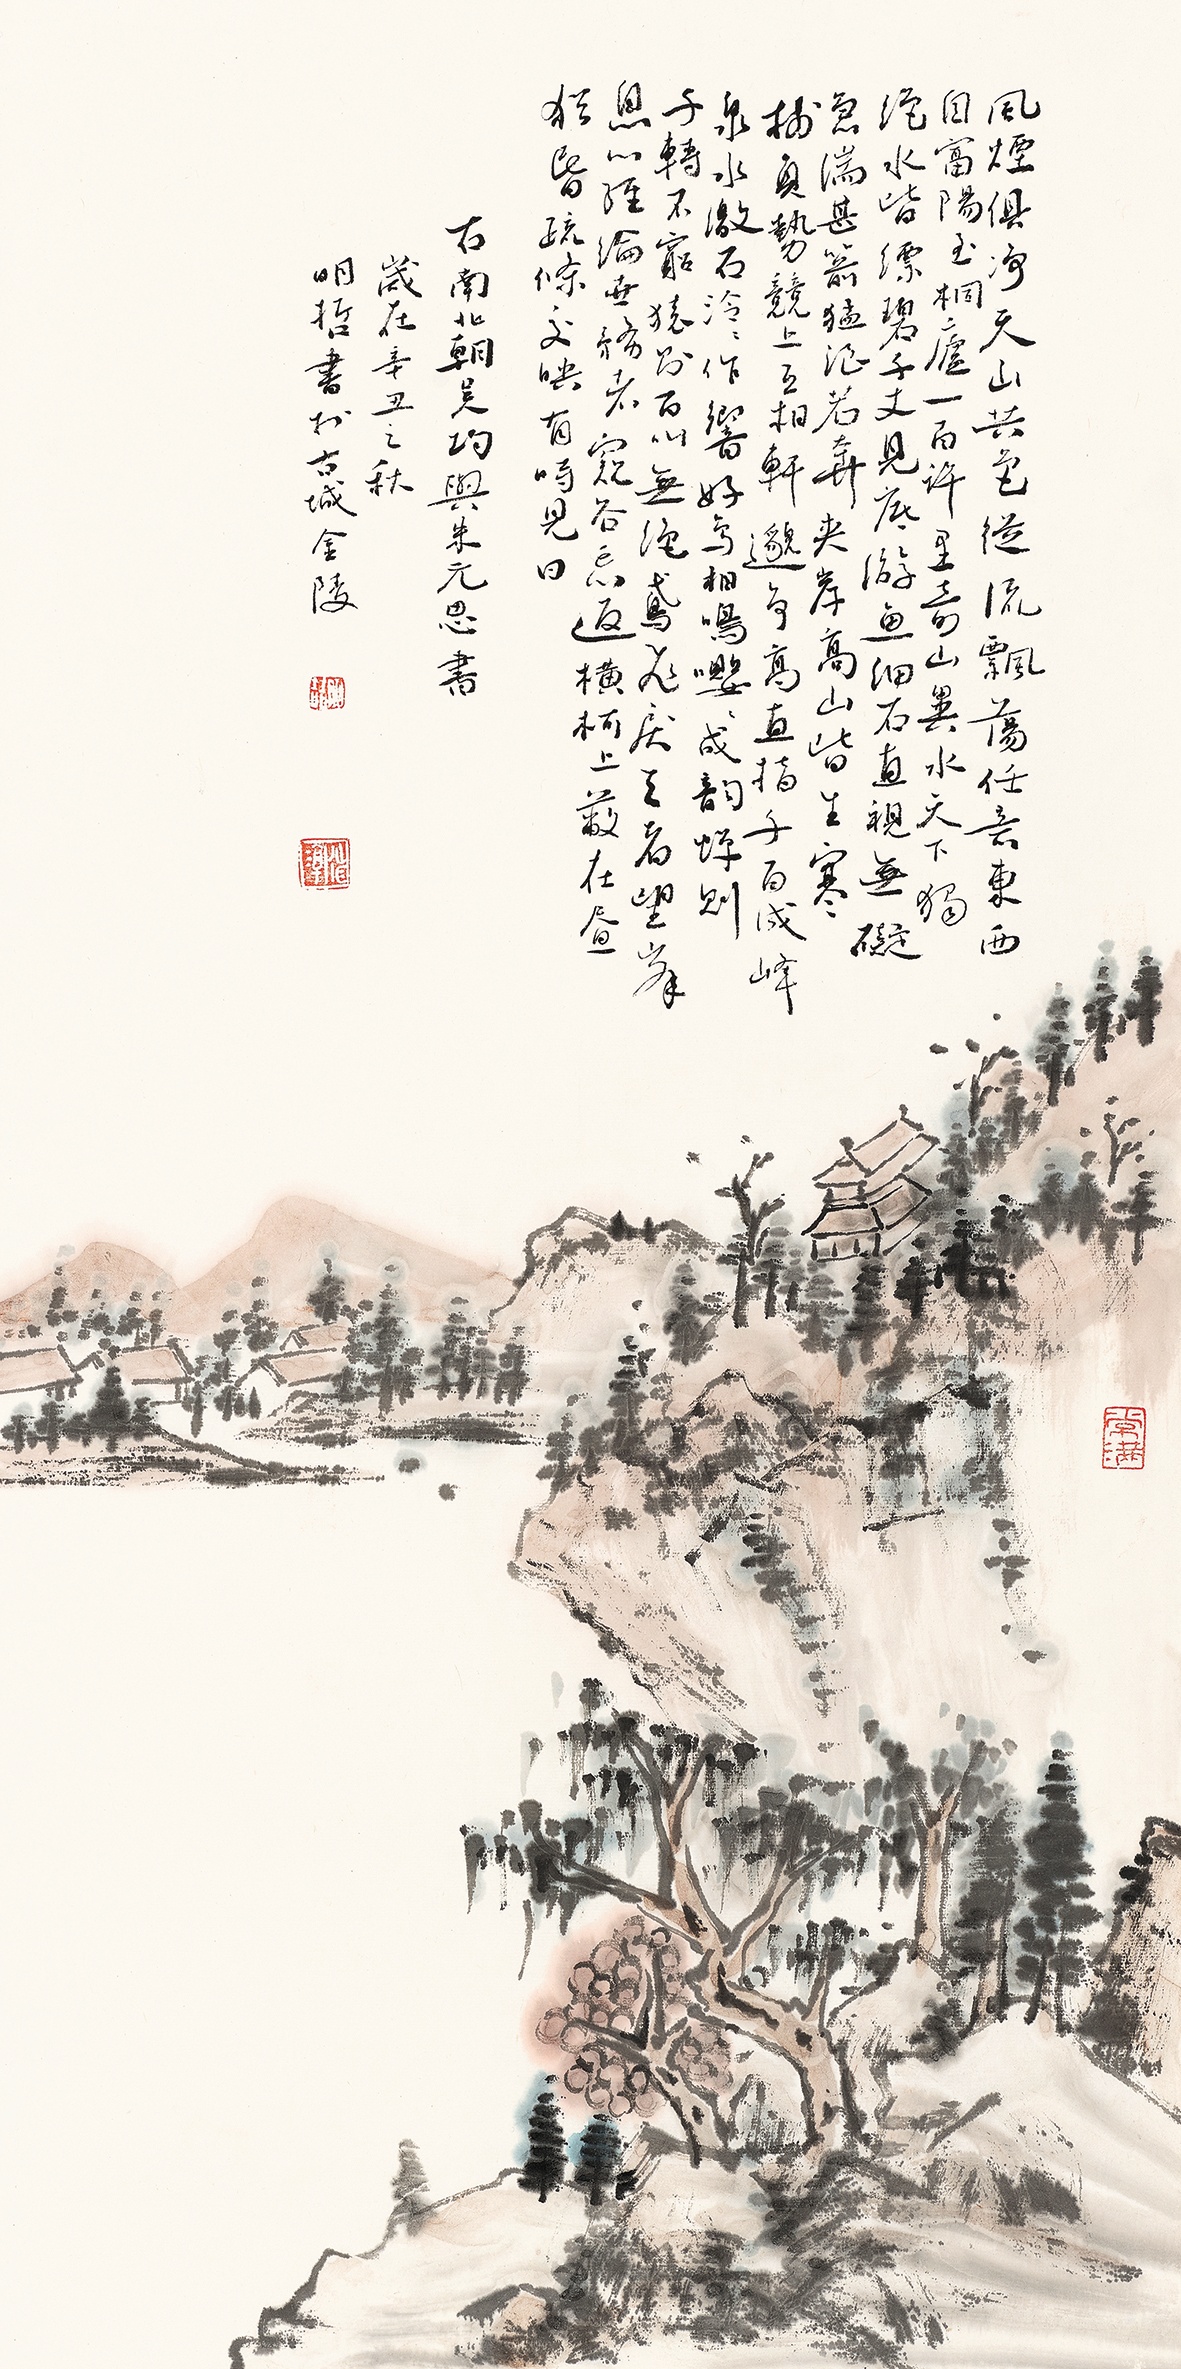 風煙俱淨天山共色從流飄蕩任意東西
自富陽至桐廬一百許里奇山異水天下獨
絕水皆縹碧千丈見底游魚細石直視無礙
急湍甚箭猛浪若奔夾岸高山皆生寒
樹負勢競上互相軒邈爭高直指千百成峰
泉水激石泠泠作響好鳥相鳴嚶嚶成韵蟬則
千轉不窮猿則百叫無絕鳶飛戾天者望峯
息心經綸世務者窺谷忘返橫柯上蔽在晝
猶昏疏條交映有時見日
右南北朝吳均與朱元思書
歲在辛丑之秋
明哲書於古城金陵